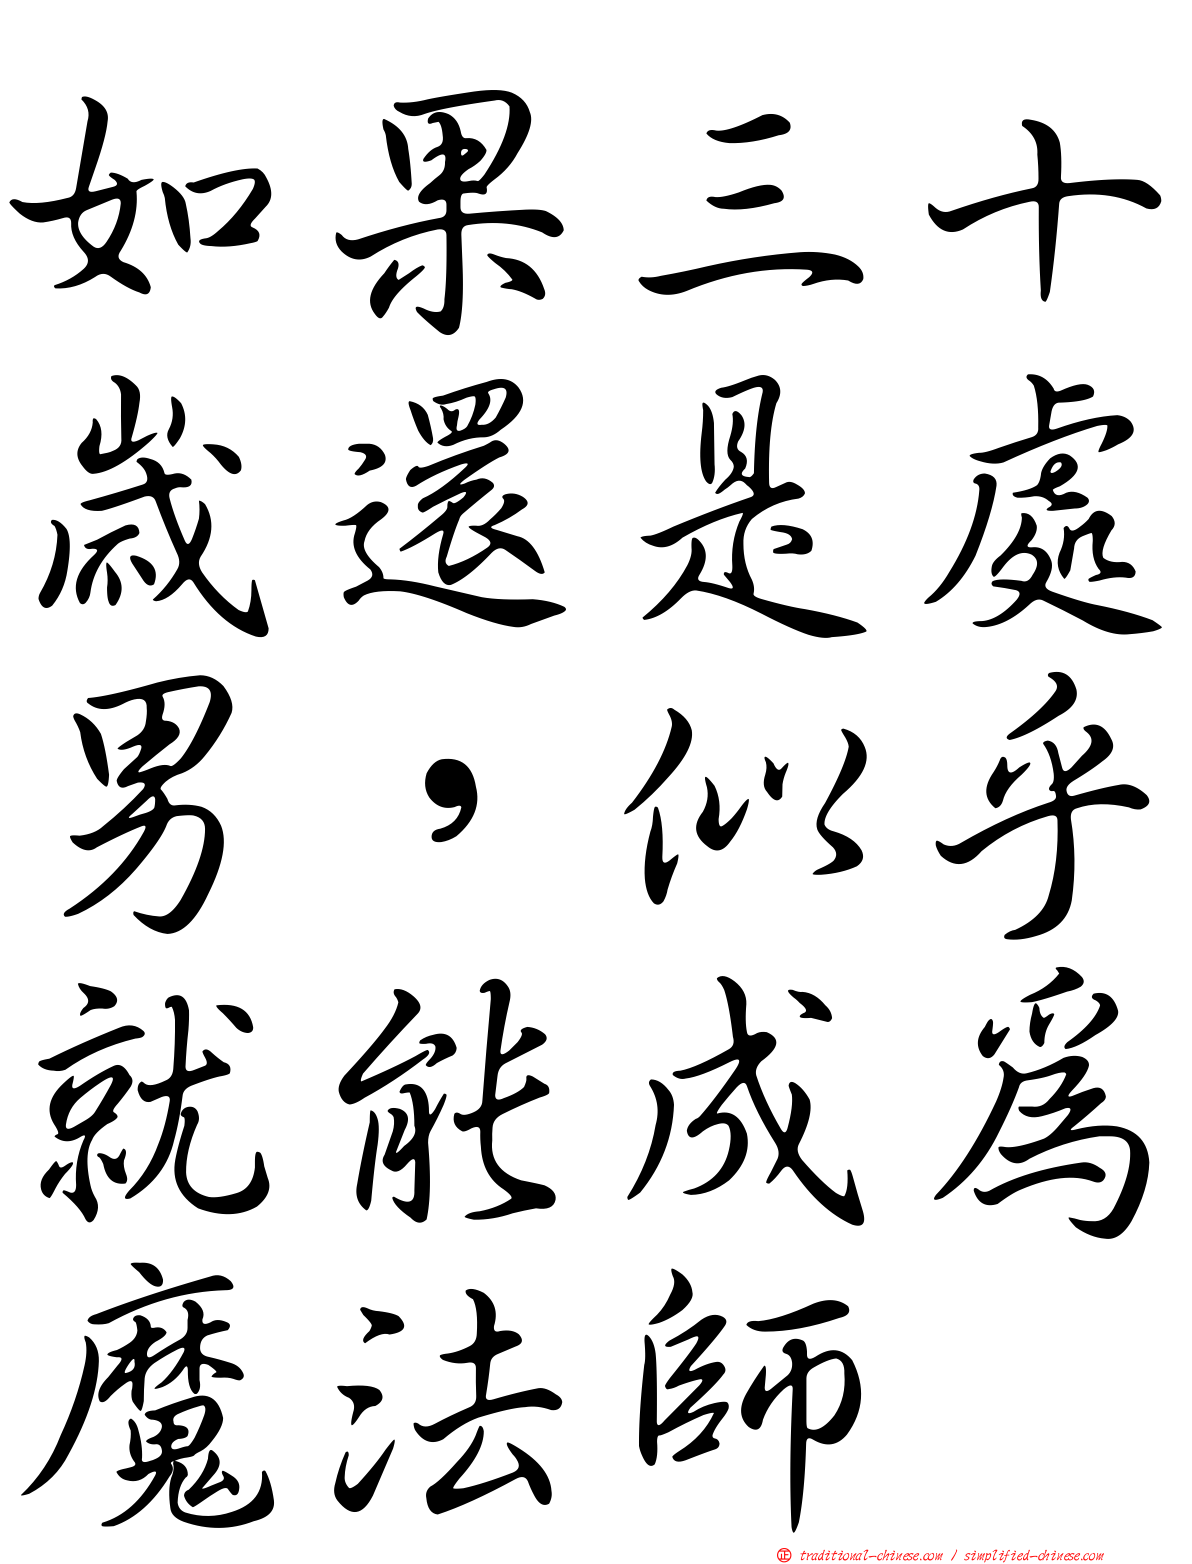 如果三十
歲還是處
男,似乎
就能成為
魔法師
正 traditional-chinese.com / simplified-chinese.com